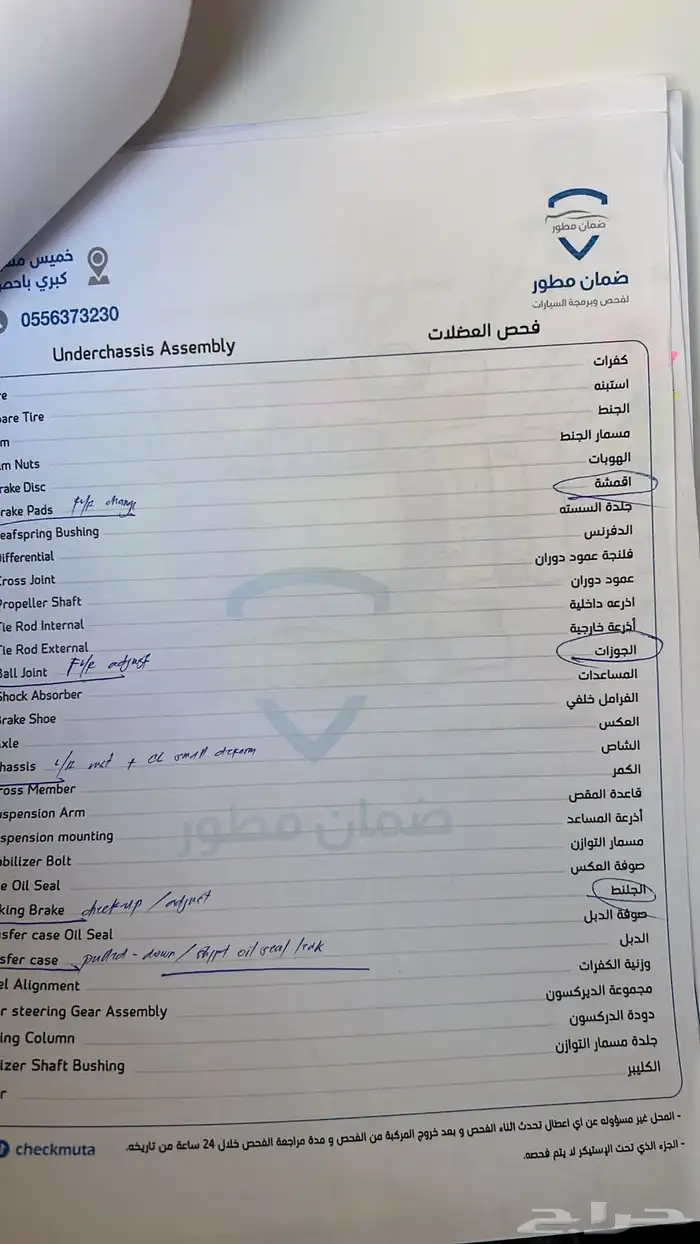 ضمان مطور
ضمان مطور
لفحص وبرمجة السيارات
خميس
كبري
0556373230
Underchassis Assembly
فحص العضلات
كفرات
are Tire
استبنه
الجنط
m Nuts
مسمار الجنط
rake Disc
الهوبات
rake Pads F/R change
اقمشة
eafspring Bushing
جلدة السسته
Differential
الدفرنس
Cross Joint
فلنجة عمود دوران
Propeller Shaft
عمود دوران
Tie Rod Internal
اذرعه داخلية
Tie Rod External
أذرعة خارجية
Ball Joint F/R adjust
الجوزات
Shock Absorber
المساعدات
Brake Shoe
الفرامل خلفي
xle
العكس
hassis + CL small
الشاص
ross Member
الكمر
spension Arm
قاعدة المقص
spension mounting
أذرعة المساعد
abilizer Bolt
مسمار التوازن
e Oil Seal
صوفة العكس
king Brake checkup / adjust
الجلنط
sfer case Oil Seal
صوفة الدبل
sfer case pulled - down / oil seal leak
الدبل
el Alignment
وزنية الكفرات
r steering Gear Assembly
مجموعة الديركسون
ing Column
دودة الدركسون
izer Shaft Bushing
جلدة مسمار التوازن
r
الكليبر
ضمان مطور
- المحل غير مسؤوله عن اي اعطال تحدث اثناء الفحص و بعد خروج المركبة من الفحص و مدة مراجعة الفحص خلال 24 ساعة من تاريخه.
- الجزء الذي تحت الإستيكر لا يتم فحصه.
checkmuta
حراج